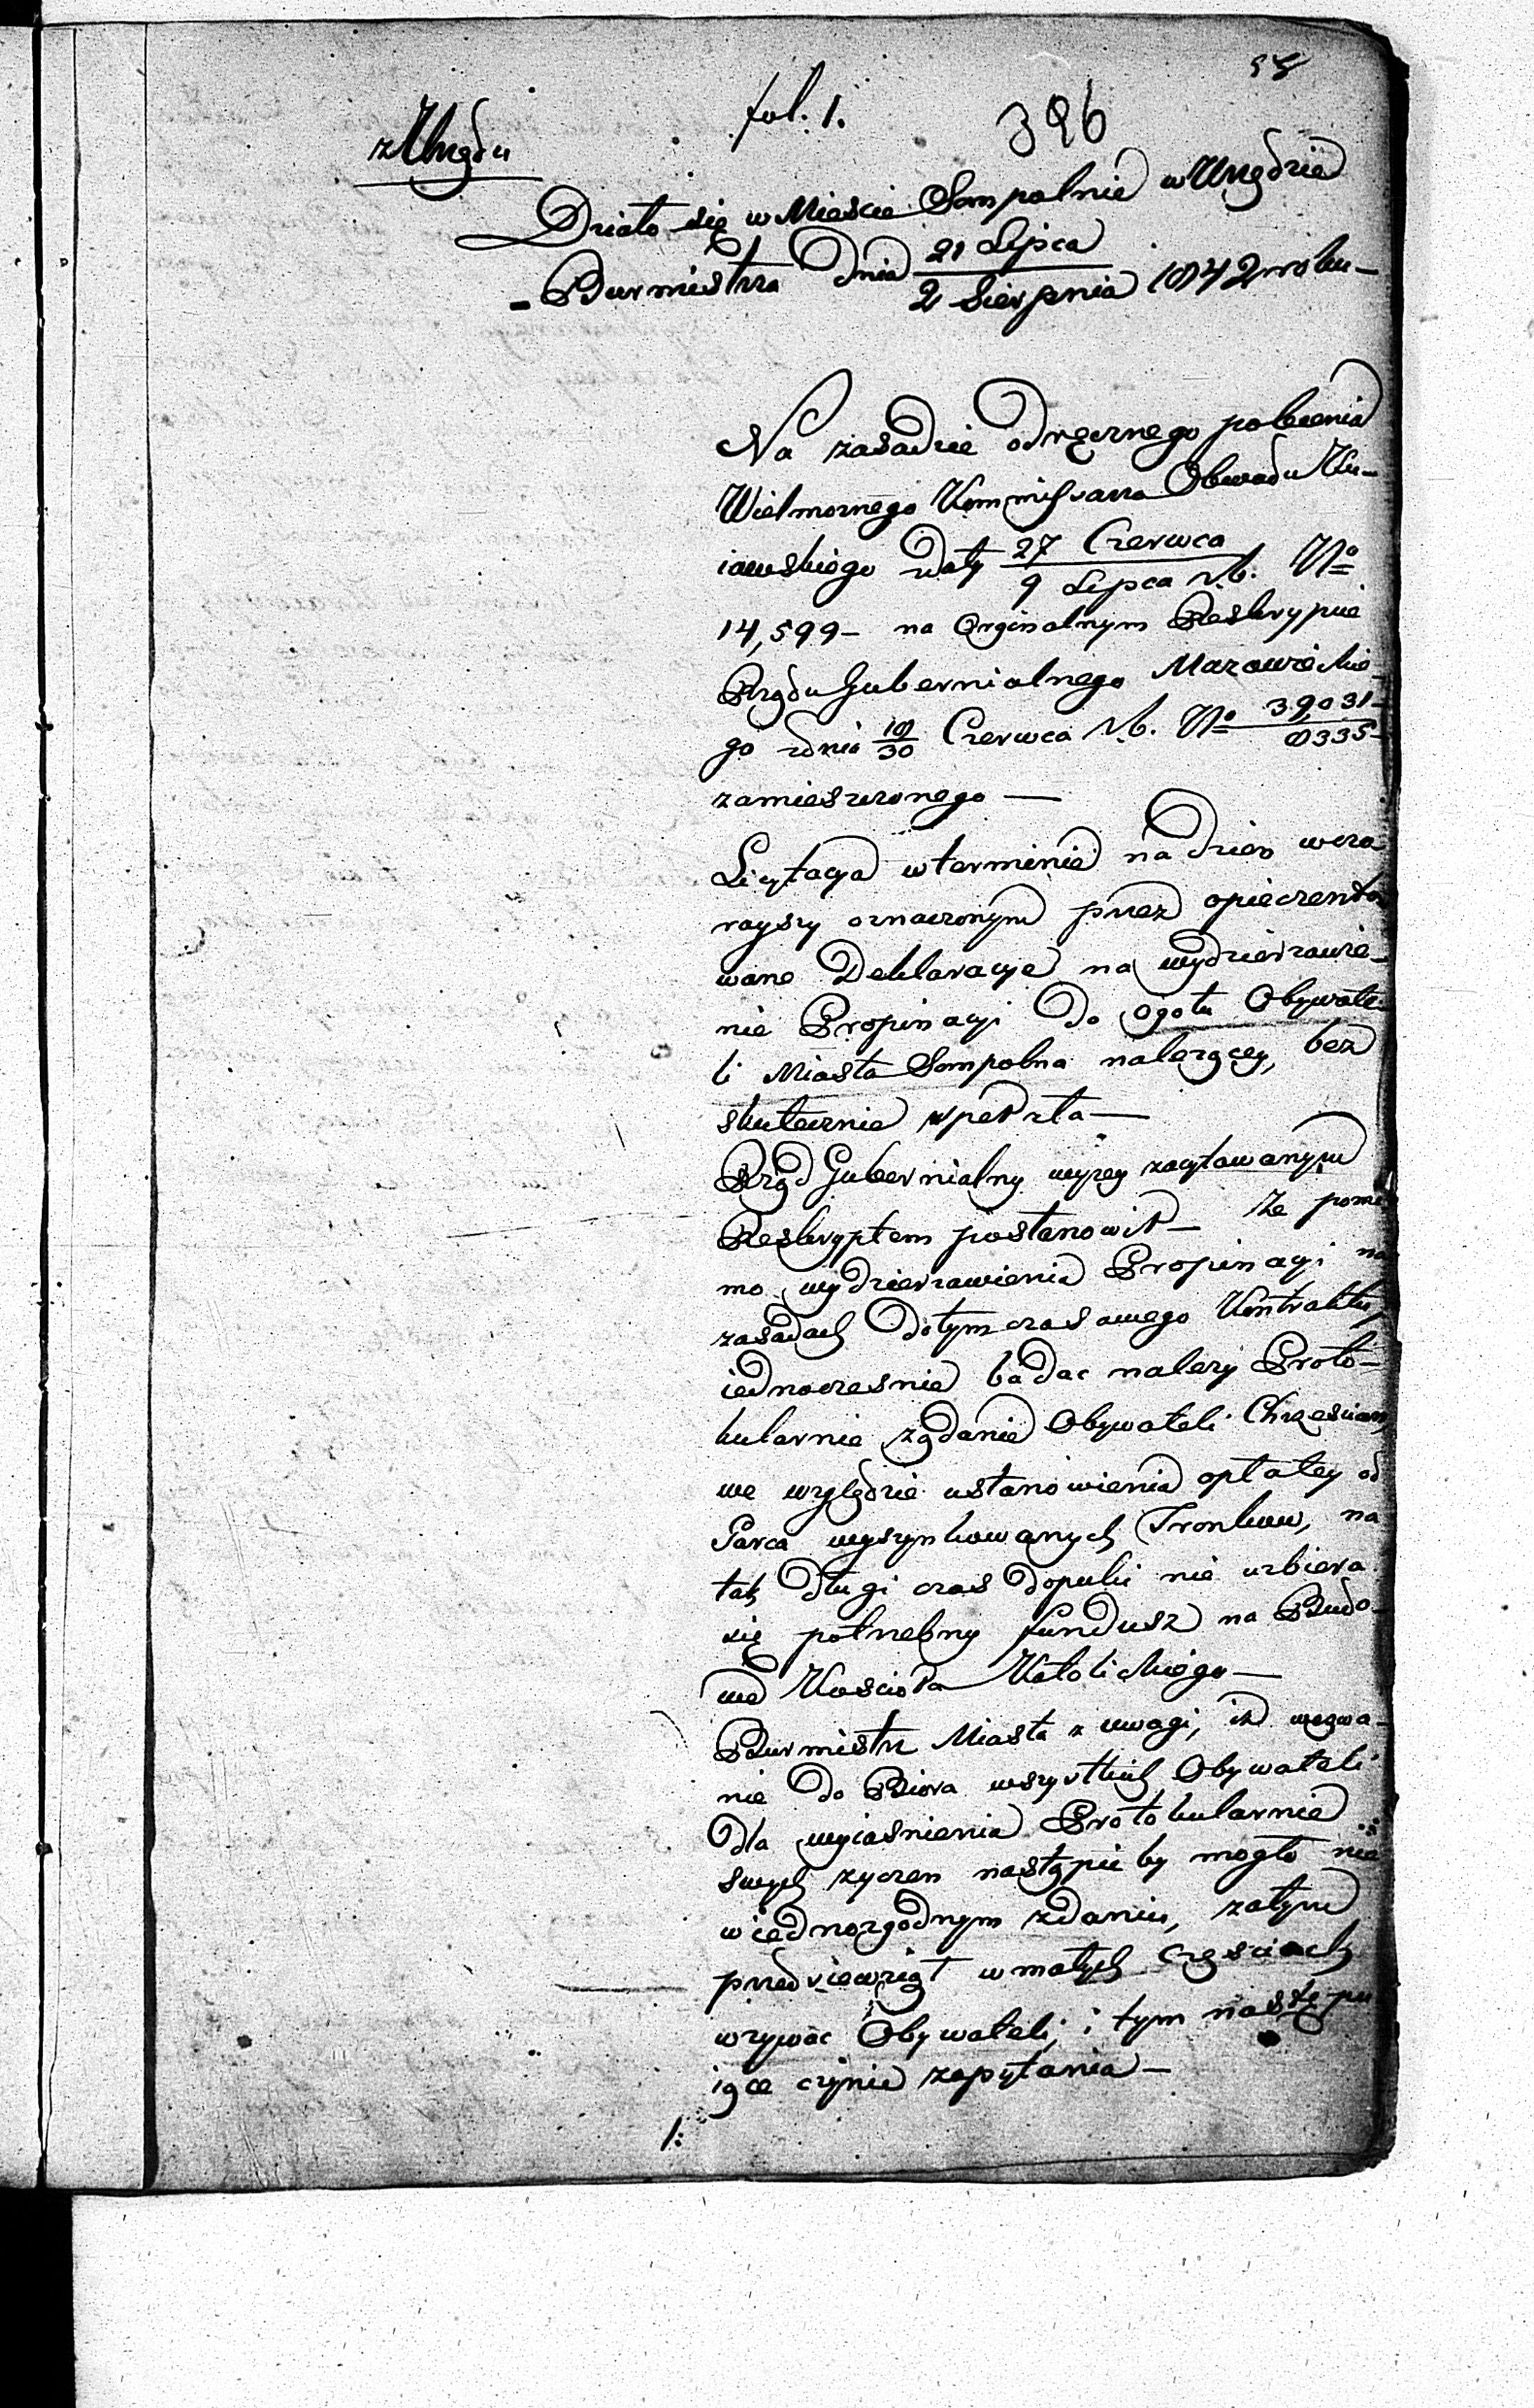 fol. 1.
396
z Urzędu
Działo się w Mieście Sompolnie w Urzędzie
Burmistrza dnia 21 Lipca / 2 Sierpnia 1842 roku –
Na zasadzie odręcznego polecenia
Wielmożnego Kommissarza Obwodu Ku-
iawskiego z daty 27 Czerwca / 9 Lipca r. b. No
14,599 – na Orginalnym Reskrypcie
Rządu Gubernialnego Mazowieckie-
go z dnia 18/30 Czerwca r. b. No 39,031 / 8335 –
zamieszczonego —
Licytacya w terminie na dzień wczo
rayszy oznaczonym przez opieczento
wane Deklaracye na wydzierzawie-
nie Propinacyi do ogołu Obywate-
li Miasta Sompolna nalezącey, bez
skutecznie spełzła —
Rząd Gubernialny wyzey zacytowanym
Reskryptem postanowił – że pomi
mo wydzierzawienia Propinacyi na
zasadach dotymczasowego Kontraktu,
iednoczesnie badac nalezy Proto-
kularnie zządanie Obywateli Chrzescian,
we względzie ustanowienia opłatey od
Garca wyszynkowanych Tronkow, na
tak długi czas dopuki nie uzbiera
się potrzebny fundusz na Budo-
we Koscioła Katolickiego —
Burmistrz Miasta z uwagi, iz wezwa-
nie do Biora wszystkich Obywateli
dla wyiasnienia Protokularnie
swych zyczen nastąpic by mogło nie
w iednozgodnym zdaniu, zatym
przedsiewziął w małych częsciach
wzywac Obywateli, i tym następu
iące czynie zapytania —
1: